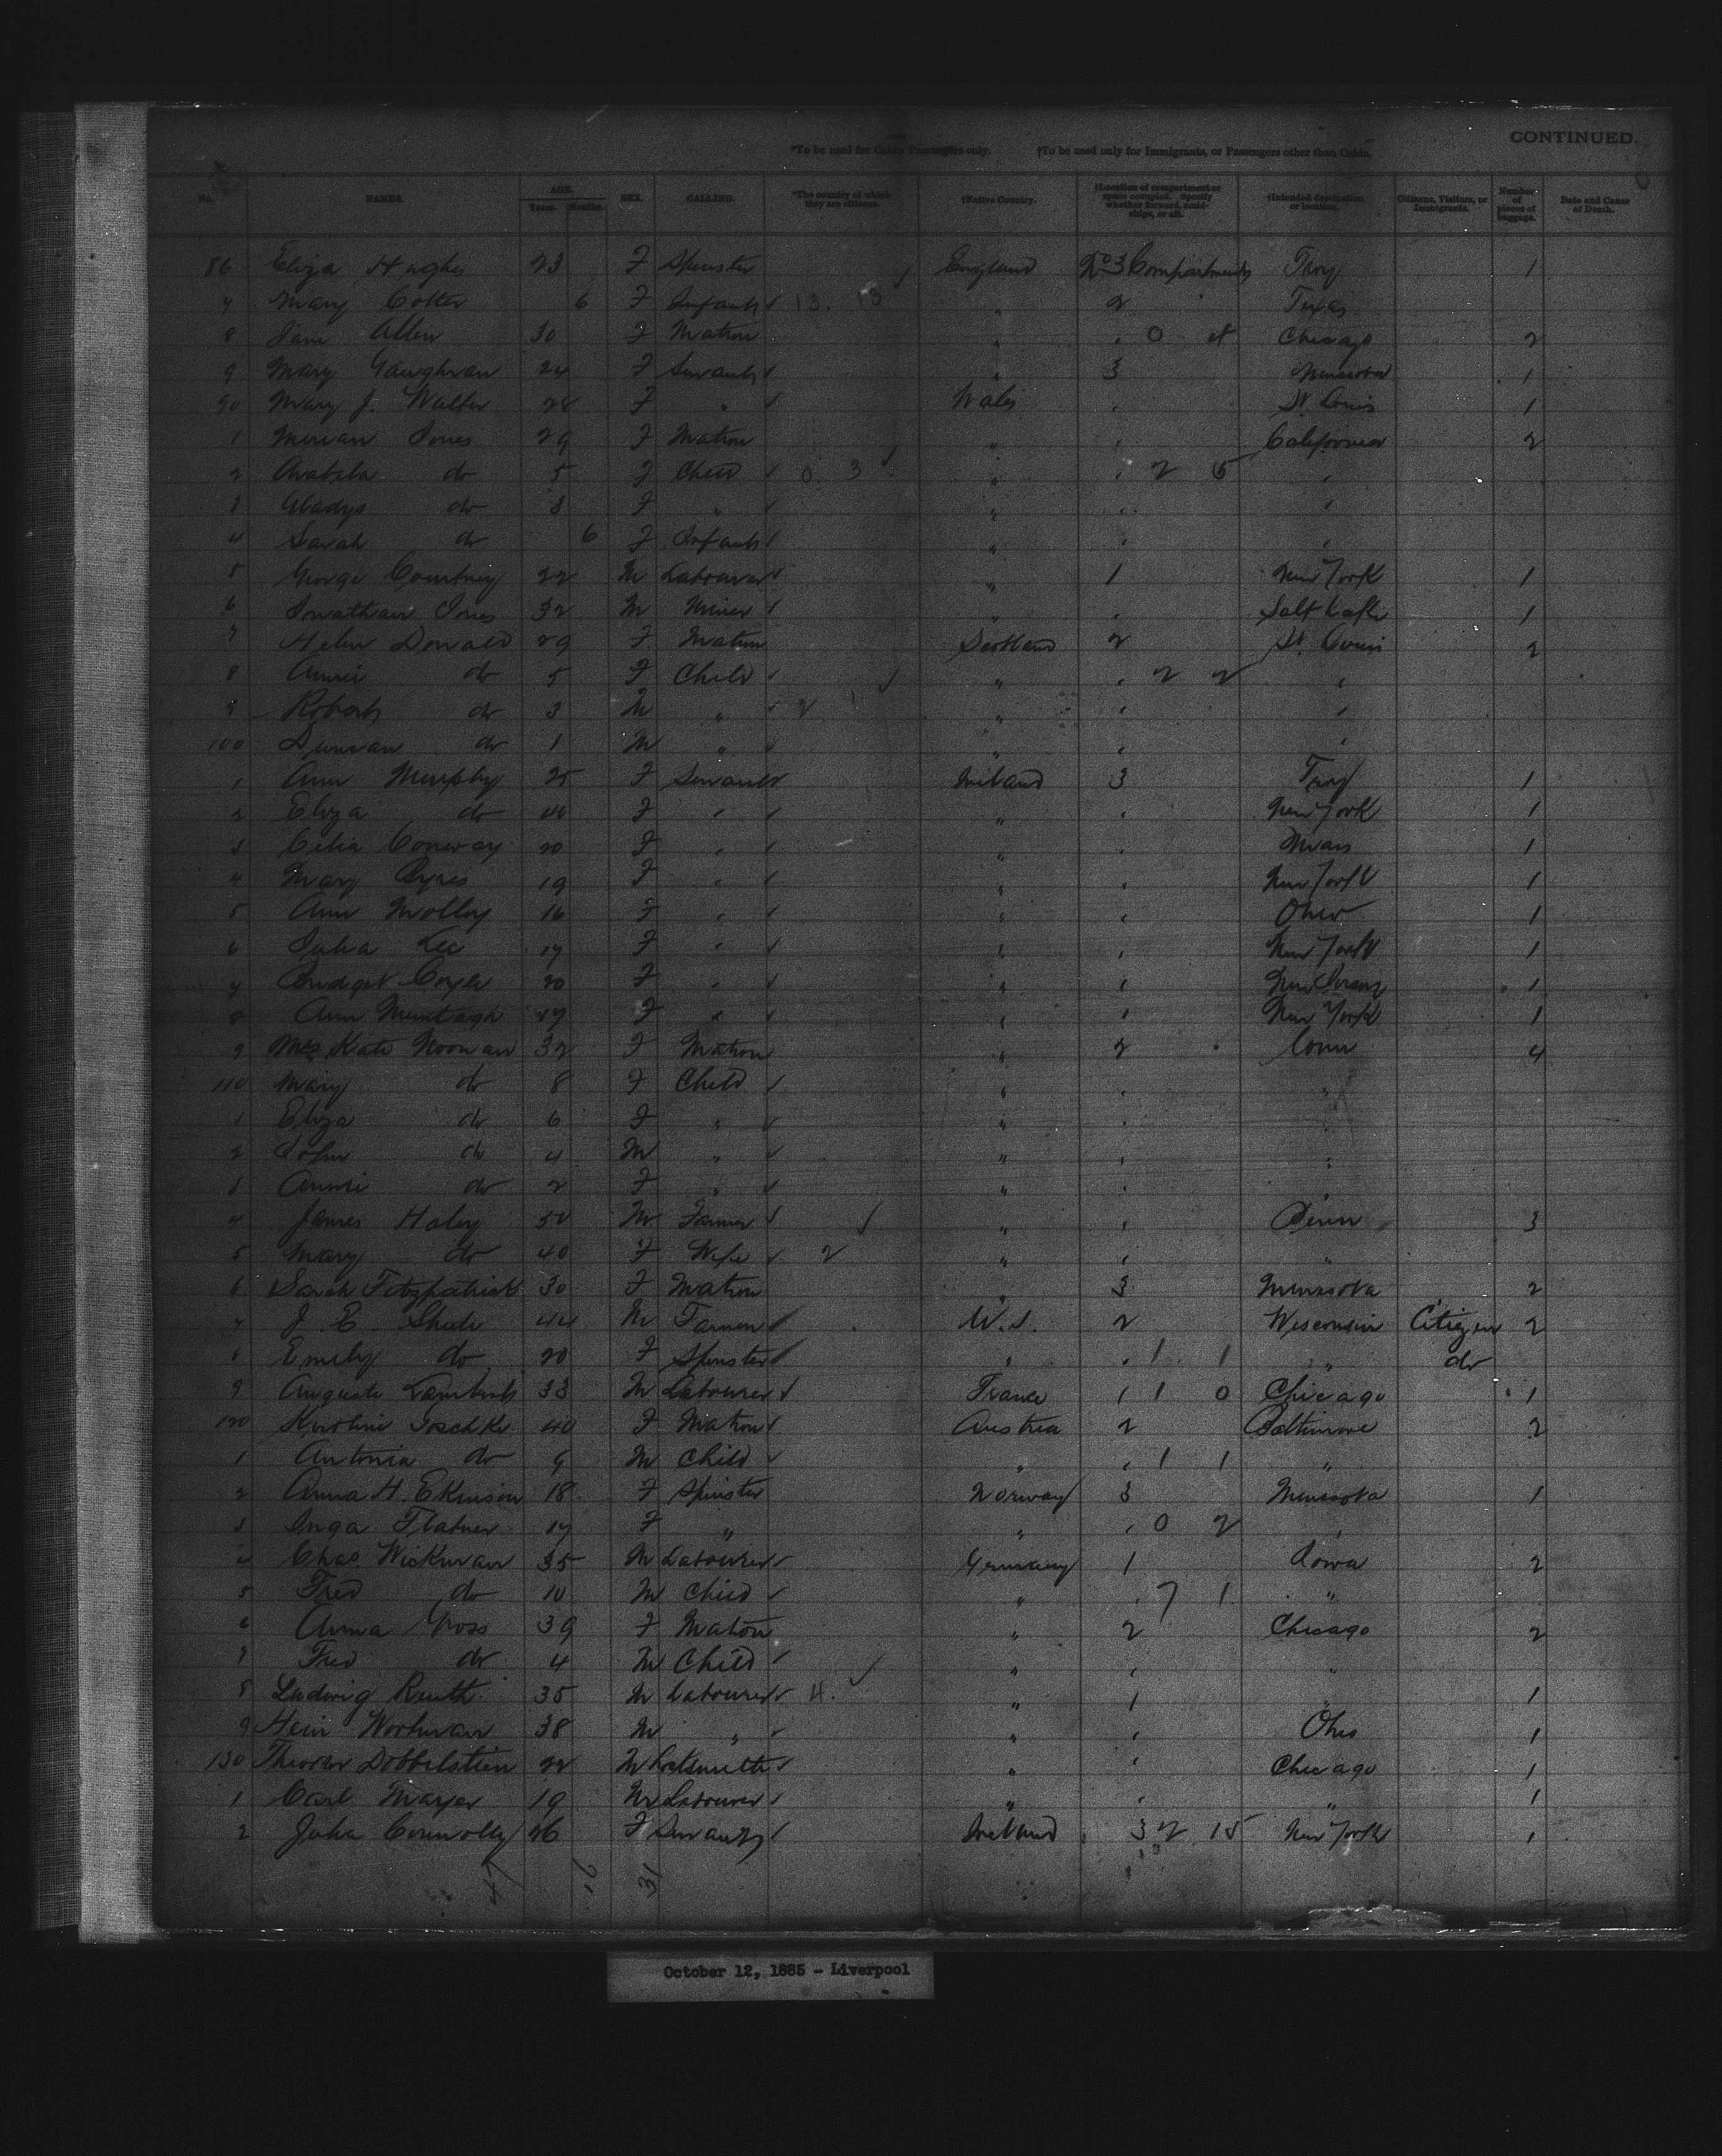 CONTINUED.
*To be used for Cabin Passengers only. †To be used only for Immigrants, or Passengers other than Cabin.
No. NAMES. AGE. Years. Months. SEX. CALLING. *The country of which they are citizens. †Native Country. †Location of compartment or space occupied. Specify whether forward, amidships, or aft. †Intended destination or location. Citizens, Visitors, or Immigrants. Number of pieces of baggage. Date and Cause of Death.
86 Eliza Hughes 23 F Spinster England No 3 Compartments Troy 1
7 Mary Cotter 6 F Infant 13. 13 " 2 Texas
8 Jane Allen 30 F Matron " " 0 4 Chicago 2
9 Mary Gaughran 24 F Servant " 3 Minnesota 1
90 Mary J. Walter 28 F " Wales " St Louis 1
1 Miriam Jones 29 F Matron " " California 2
2 Arabela do 5 F Child 0 3 " " 2 5 "
3 Gladys do 3 F " " " "
4 Sarah do 6 F Infant " " "
5 George Courtney 22 M Labourer " 1 New York 1
6 Jonathan Jones 32 M Miner " " Salt Lake 1
7 Helen Donald 29 F Matron Scotland 2 St. Louis 2
8 Annie do 5 F Child " " 2 2 "
9 Robert do 3 M " 2 1 " " "
100 Duncan do 1 M " " " "
1 Ann Murphy 25 F Servant Ireland 3 Troy 1
2 Eliza do 40 F " " " New York 1
3 Celia Conway 20 F " " " 1
4 Mary Byres 19 F " " " New York 1
5 Ann Molloy 16 F " " " Ohio 1
6 Julia Lee 17 F " " " New York 1
7 Bridget Coyle 20 F " " " New 1
8 Ann Muntagh 17 F " " " New York 1
9 Mrs Kate Noonan 32 F Matron " 2 Conn 4
110 Mary do 8 F Child " " "
1 Eliza do 6 F " " " "
2 John do 4 M " " " "
3 Annie do 2 F " " " "
4 James Haley 50 M Farmer " " Penn 3
5 Mary do 40 F Wife 2 " " "
6 Sarah Fitzpatrick 30 F Matron " 3 Minnesota 2
7 J. E. Shute 44 M Farmer U.S. 2 Wisconsin Citizen 2
8 Emily do 20 F Spinster " " 1 1 " do
9 Auguste 33 M Labourer France 1 1 0 Chicago 1
120 Karoline Joschke 40 F Matron Austria 2 Baltimore 2
1 Antonia do 9 M Child " " 1 1 "
2 Anna H. Ekinson 18 F Spinster Norway 3 Minnesota 1
3 Inga Flatner 17 F " " " 0 2 "
4 Chas Wickman 35 M Labourer Germany 1 Iowa 2
5 Fred do 10 M Child " " 7 1 "
6 Anna Gross 39 F Matron " 2 Chicago 2
7 Fred do 4 M Child " " "
8 Ludwig Reuth 35 M Labourer 4. " 1 " 1
9 Hein Workman 38 M " " " Ohio 1
130 Theodor Dobbelstein 22 M Locksmith " " Chicago 1
1 Carl Mayer 19 M Labourer " " " 1
2 Julia Connolly 26 F Servant Ireland 3 2 15 New York 1
31
October 12, 1885 - Liverpool